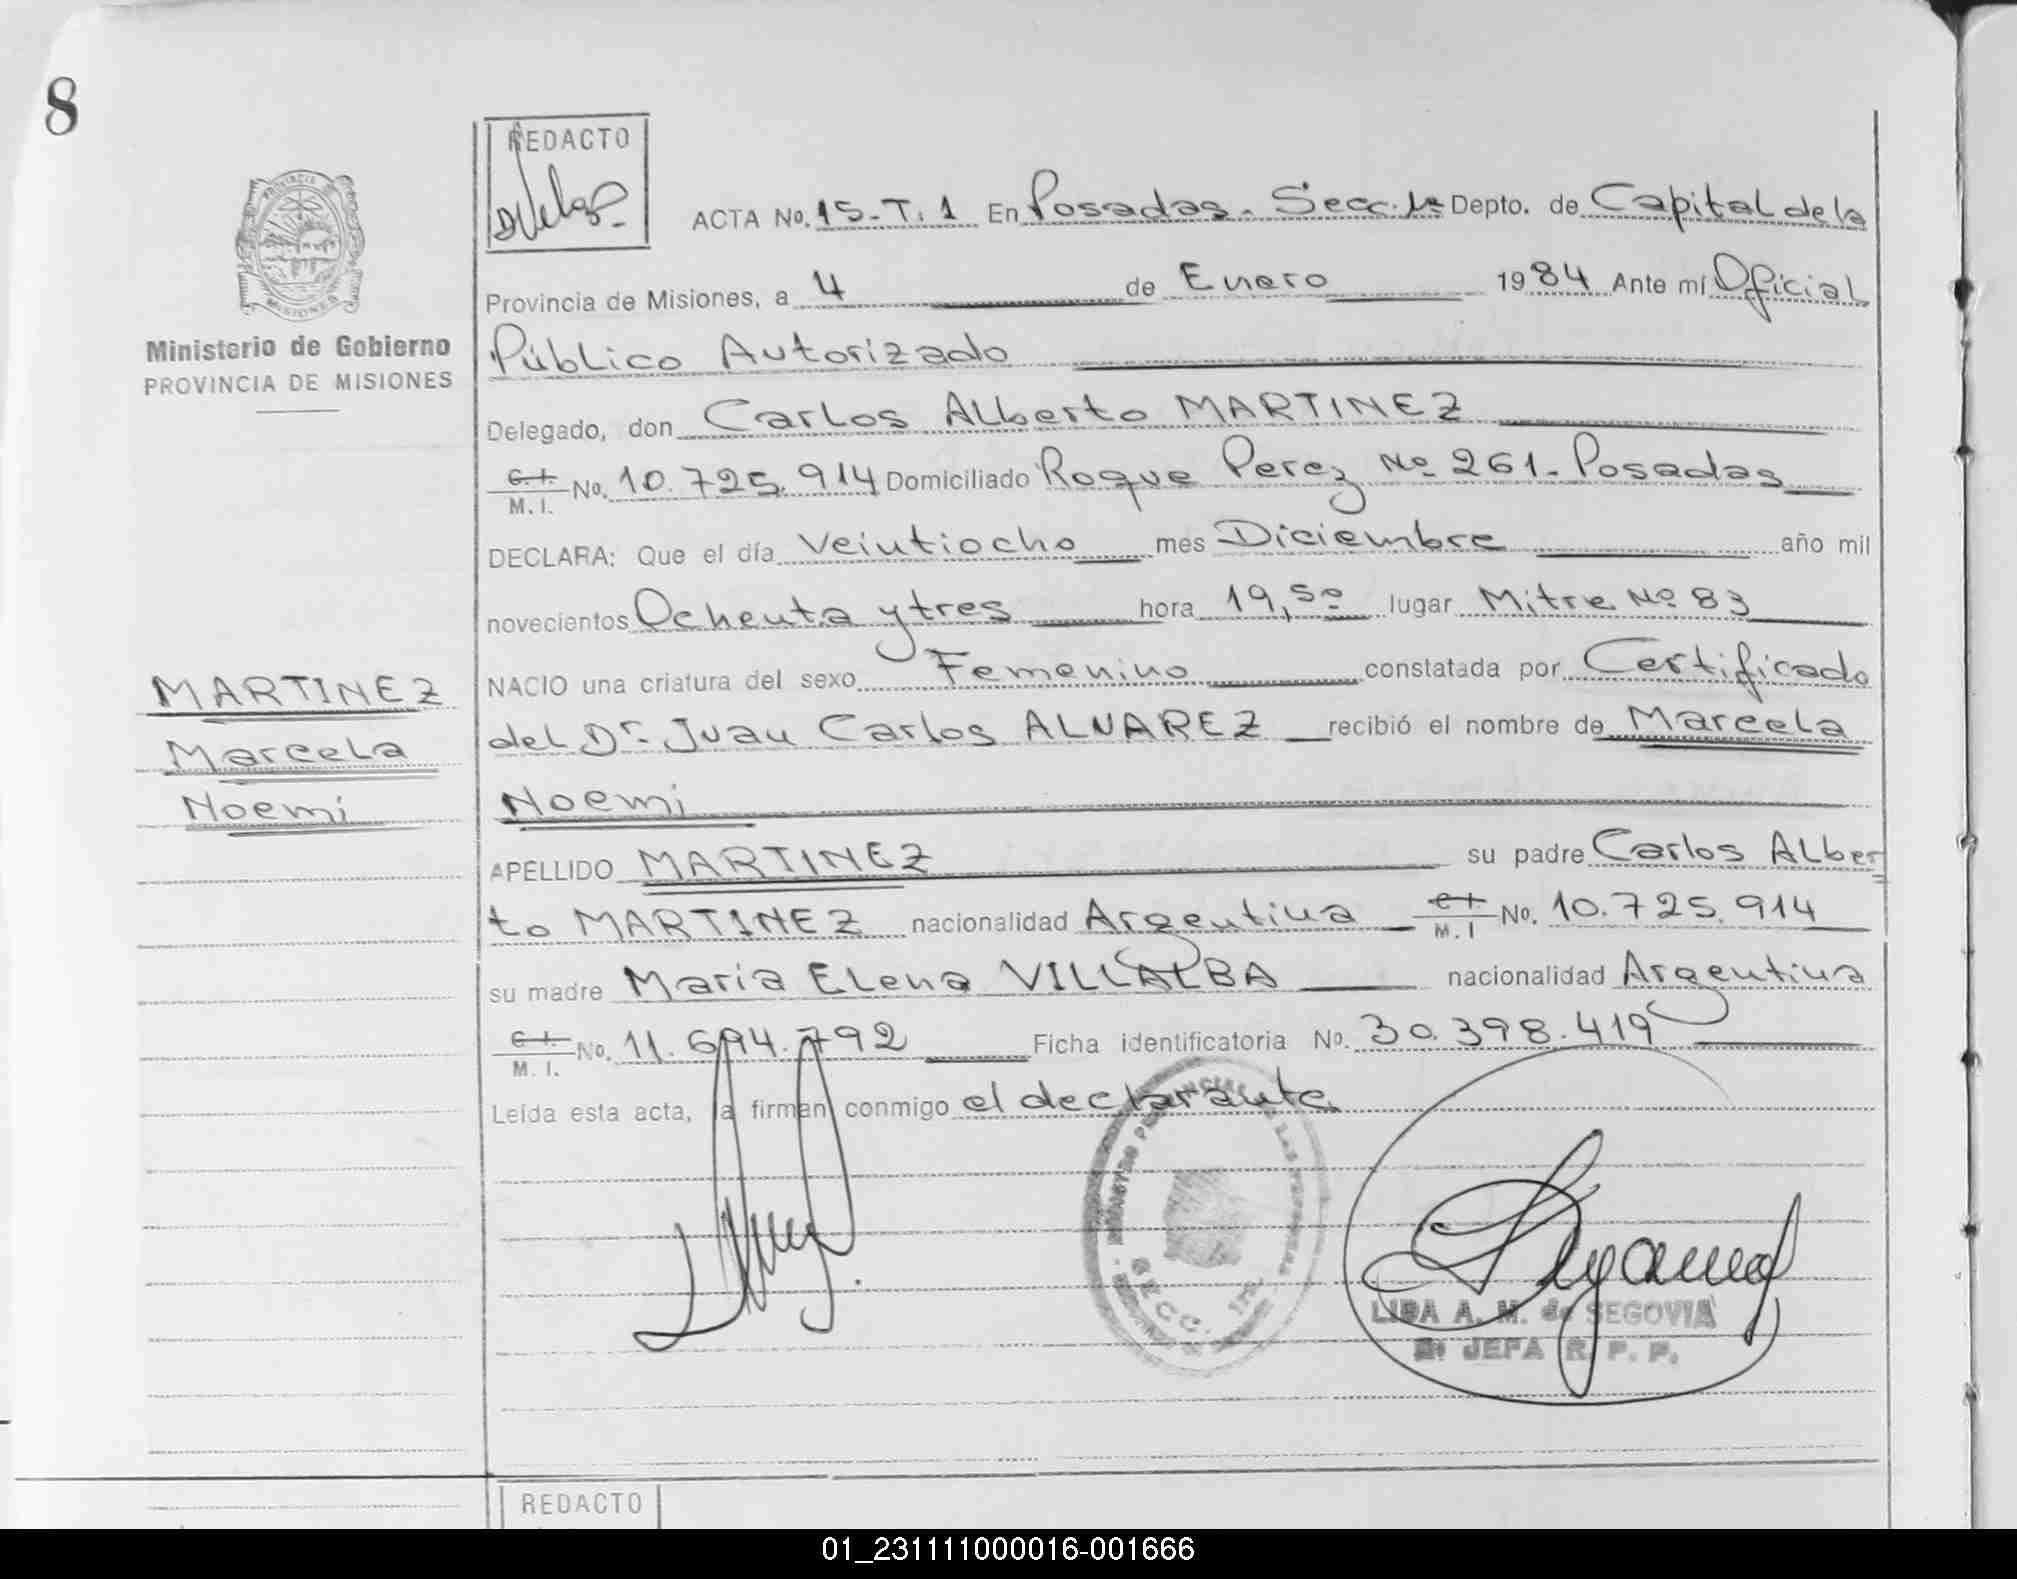 8
REDACTO
ACTA No. 15-T. 1 En Posadas. Secc. 1ª Depto. de Capital de la
Provincia de Misiones, a 4 de Enero 1984 Ante mí Oficial
Público Autorizado
Delegado, don Carlos Alberto MARTINEZ
C.I. M.I. No. 10.725.914 Domiciliado Roque Perez Nº 261.- Posadas
DECLARA: Que el día Veintiocho mes Diciembre año mil
novecientos Ochenta y tres hora 19,50 lugar Mitre Nº 83
NACIO una criatura del sexo Femenino constatada por Certificado
del Dr. Juan Carlos ALVAREZ recibió el nombre de Marcela
Noemi
APELLIDO MARTINEZ su padre Carlos Alber
to MARTINEZ nacionalidad Argentina C.I. M.I No. 10.725.914
su madre Maria Elena VILLALBA nacionalidad Argentina
C.I. M.I. No. 11.694.792 Ficha identificatoria No. 30.398.419
Leída esta acta, la firman conmigo el declarante
PROVINCIA DE MISIONES
Ministerio de Gobierno
PROVINCIA DE MISIONES
MARTINEZ
Marcela
Noemí
SECC. 1ra.
LIBA A. M. de SEGOVIA
JEFA R. P. P.
REDACTO
01_231111000016-001666